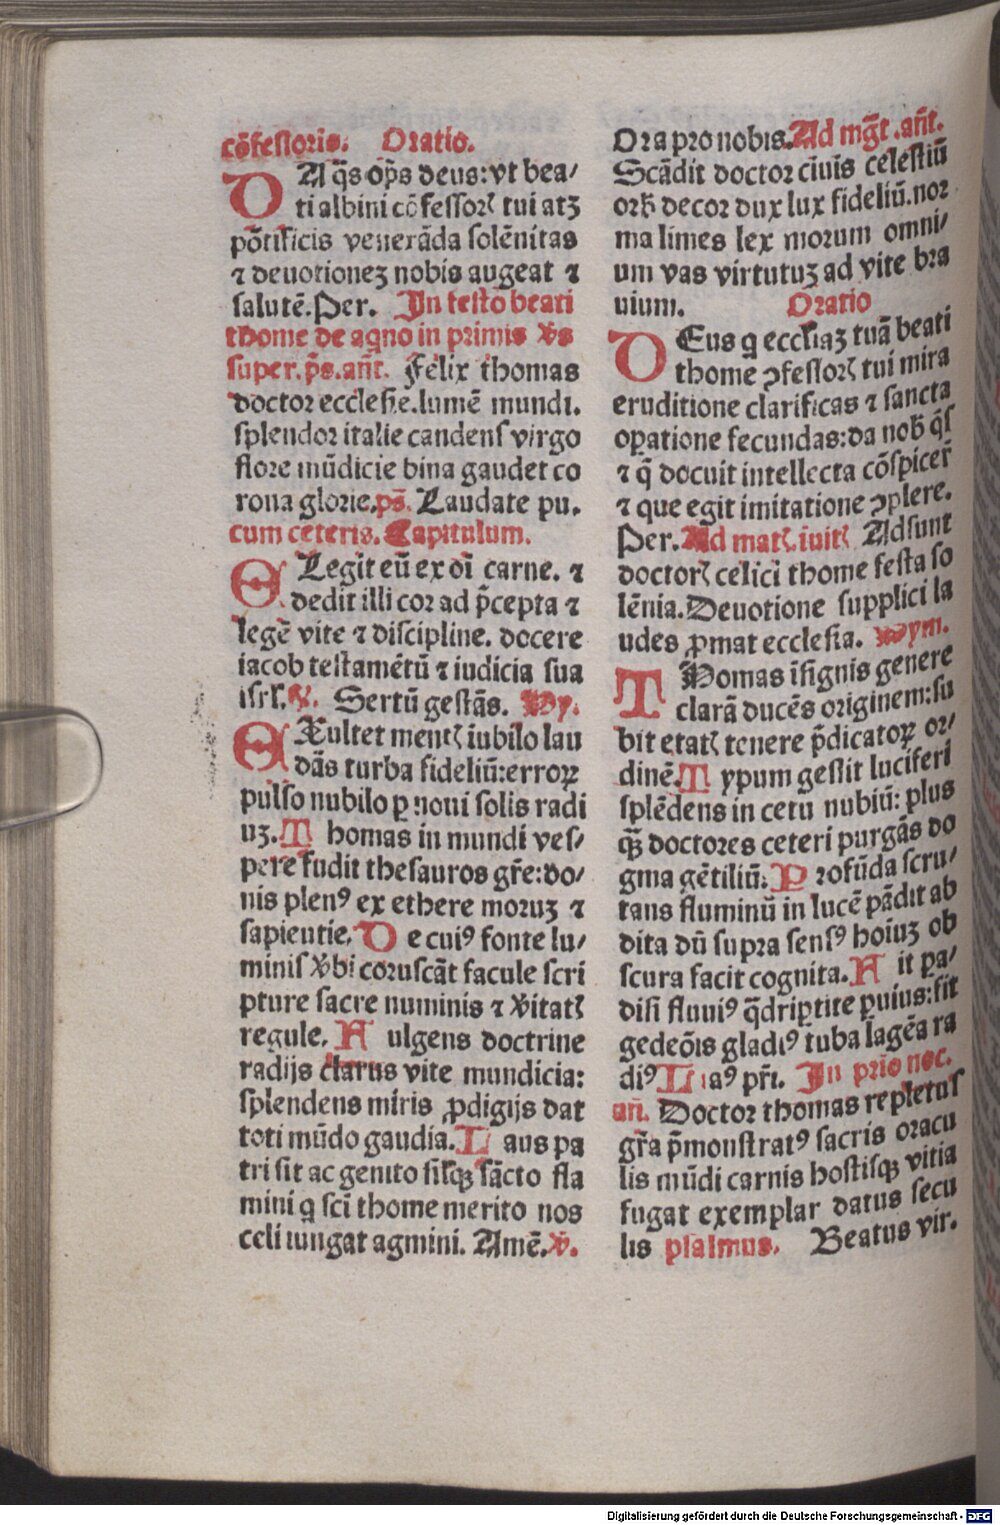 cōfessoris. Oratio.
DA q̄s op̄s deus: vt bea/
ti albini cōfessorꝭ tui atꝫ
pōtificis venerāda solēnitas
⁊ deuotioneꝫ nobis augeat ⁊
salutē. Per. In festo beati
thome de aqno in primis v̄s
super. p̄s. an̄t. Felix thomas
doctor ecclesie. lumē mundi.
splendor italie candens virgo
flore mūdicie bina gaudet co
rona glorie. ps̄. Laudate pu.
cum ceteris. Capitulum.
ELegit eū ex oī carne. ⁊
dedit illi cor ad p̄cepta ⁊
legē vite ⁊ discipline. docere
iacob testamētū ⁊ iudicia sua
isrl. ℟. Sertū gestās. Hy.
EXultet mentꝭ iubilo lau
dās turba fideliū: erroꝝ
pulso nubilo ꝑ noui solis radi
uꝫ. T homas in mundi ves/
pere fudit thesauros gr̄e: do/
nis plenꝰ ex ethere moruꝫ ⁊
sapientie. D e cuiꝰ fonte lu/
minis v̄bi coruscāt facule scri
pture sacre numinis ⁊ v̄itatꝭ
regule. F ulgens doctrine
radijs clarus vite mundicia:
splendens miris ꝓdigijs dat
toti mūdo gaudia. L aus pa
tri sit ac genito sil̄qꝫ sācto fla
mini q sci thome merito nos
celi iungat agmini. Amē. v̄.
Ora pro nobis. Ad mgt̄. an̄t.
Scādit doctor ciuis celestiū
orb̄ decor dux lux fideliū. nor
ma limes lex morum omni/
um vas virtutuꝫ ad vite bra
uium. Oratio
DEus q ecclīaꝫ tuā beati
thome ꝯfessorꝭ tui mira
eruditione clarificas ⁊ sancta
oꝑatione fecundas: da nob̄ q̄s
⁊ q̄ docuit intellecta cōspicer̄
⁊ que egit imitatione ꝯplere.
Per. Ad matꝭ. iuitꝭ Adsunt
doctorꝭ celici thome festa so
lēnia. Deuotione supplici la
udes ꝓmat ecclesia. Hym.
THomas īsignis genere
clarā ducēs originem: su
bit etatꝭ tenere p̄dicatoꝝ or/
dinē. T ypum gessit luciferi
splēdens in cetu nubiū: plus
qꝫ̄ doctores ceteri purgās do
gma gētiliū: P rofūda scru/
tans fluminū in lucē pādit ab
dita dū supra sensꝰ hoiuꝫ ob
scura facit cognita. F it pa/
disi fluuiꝰ q̄driꝑtite ꝑuius: fit
gedeōis gladiꝰ tuba lagēa ra
diꝰ L aꝰ pr̄i. In prīo noc.
an̄. Doctor thomas repletus
gr̄a p̄monstratꝰ sacris oracu
lis mūdi carnis hostisqꝫ vitia
fugat exemplar datus secu
lis psalmus. Beatus vir.
Digitalisierung gefördert durch die Deutsche Forschungsgemeinschaft - DFG